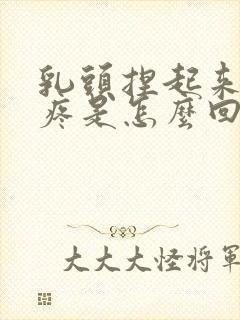 乳頭捏起來
疼是怎麼回
大大大怪將軍